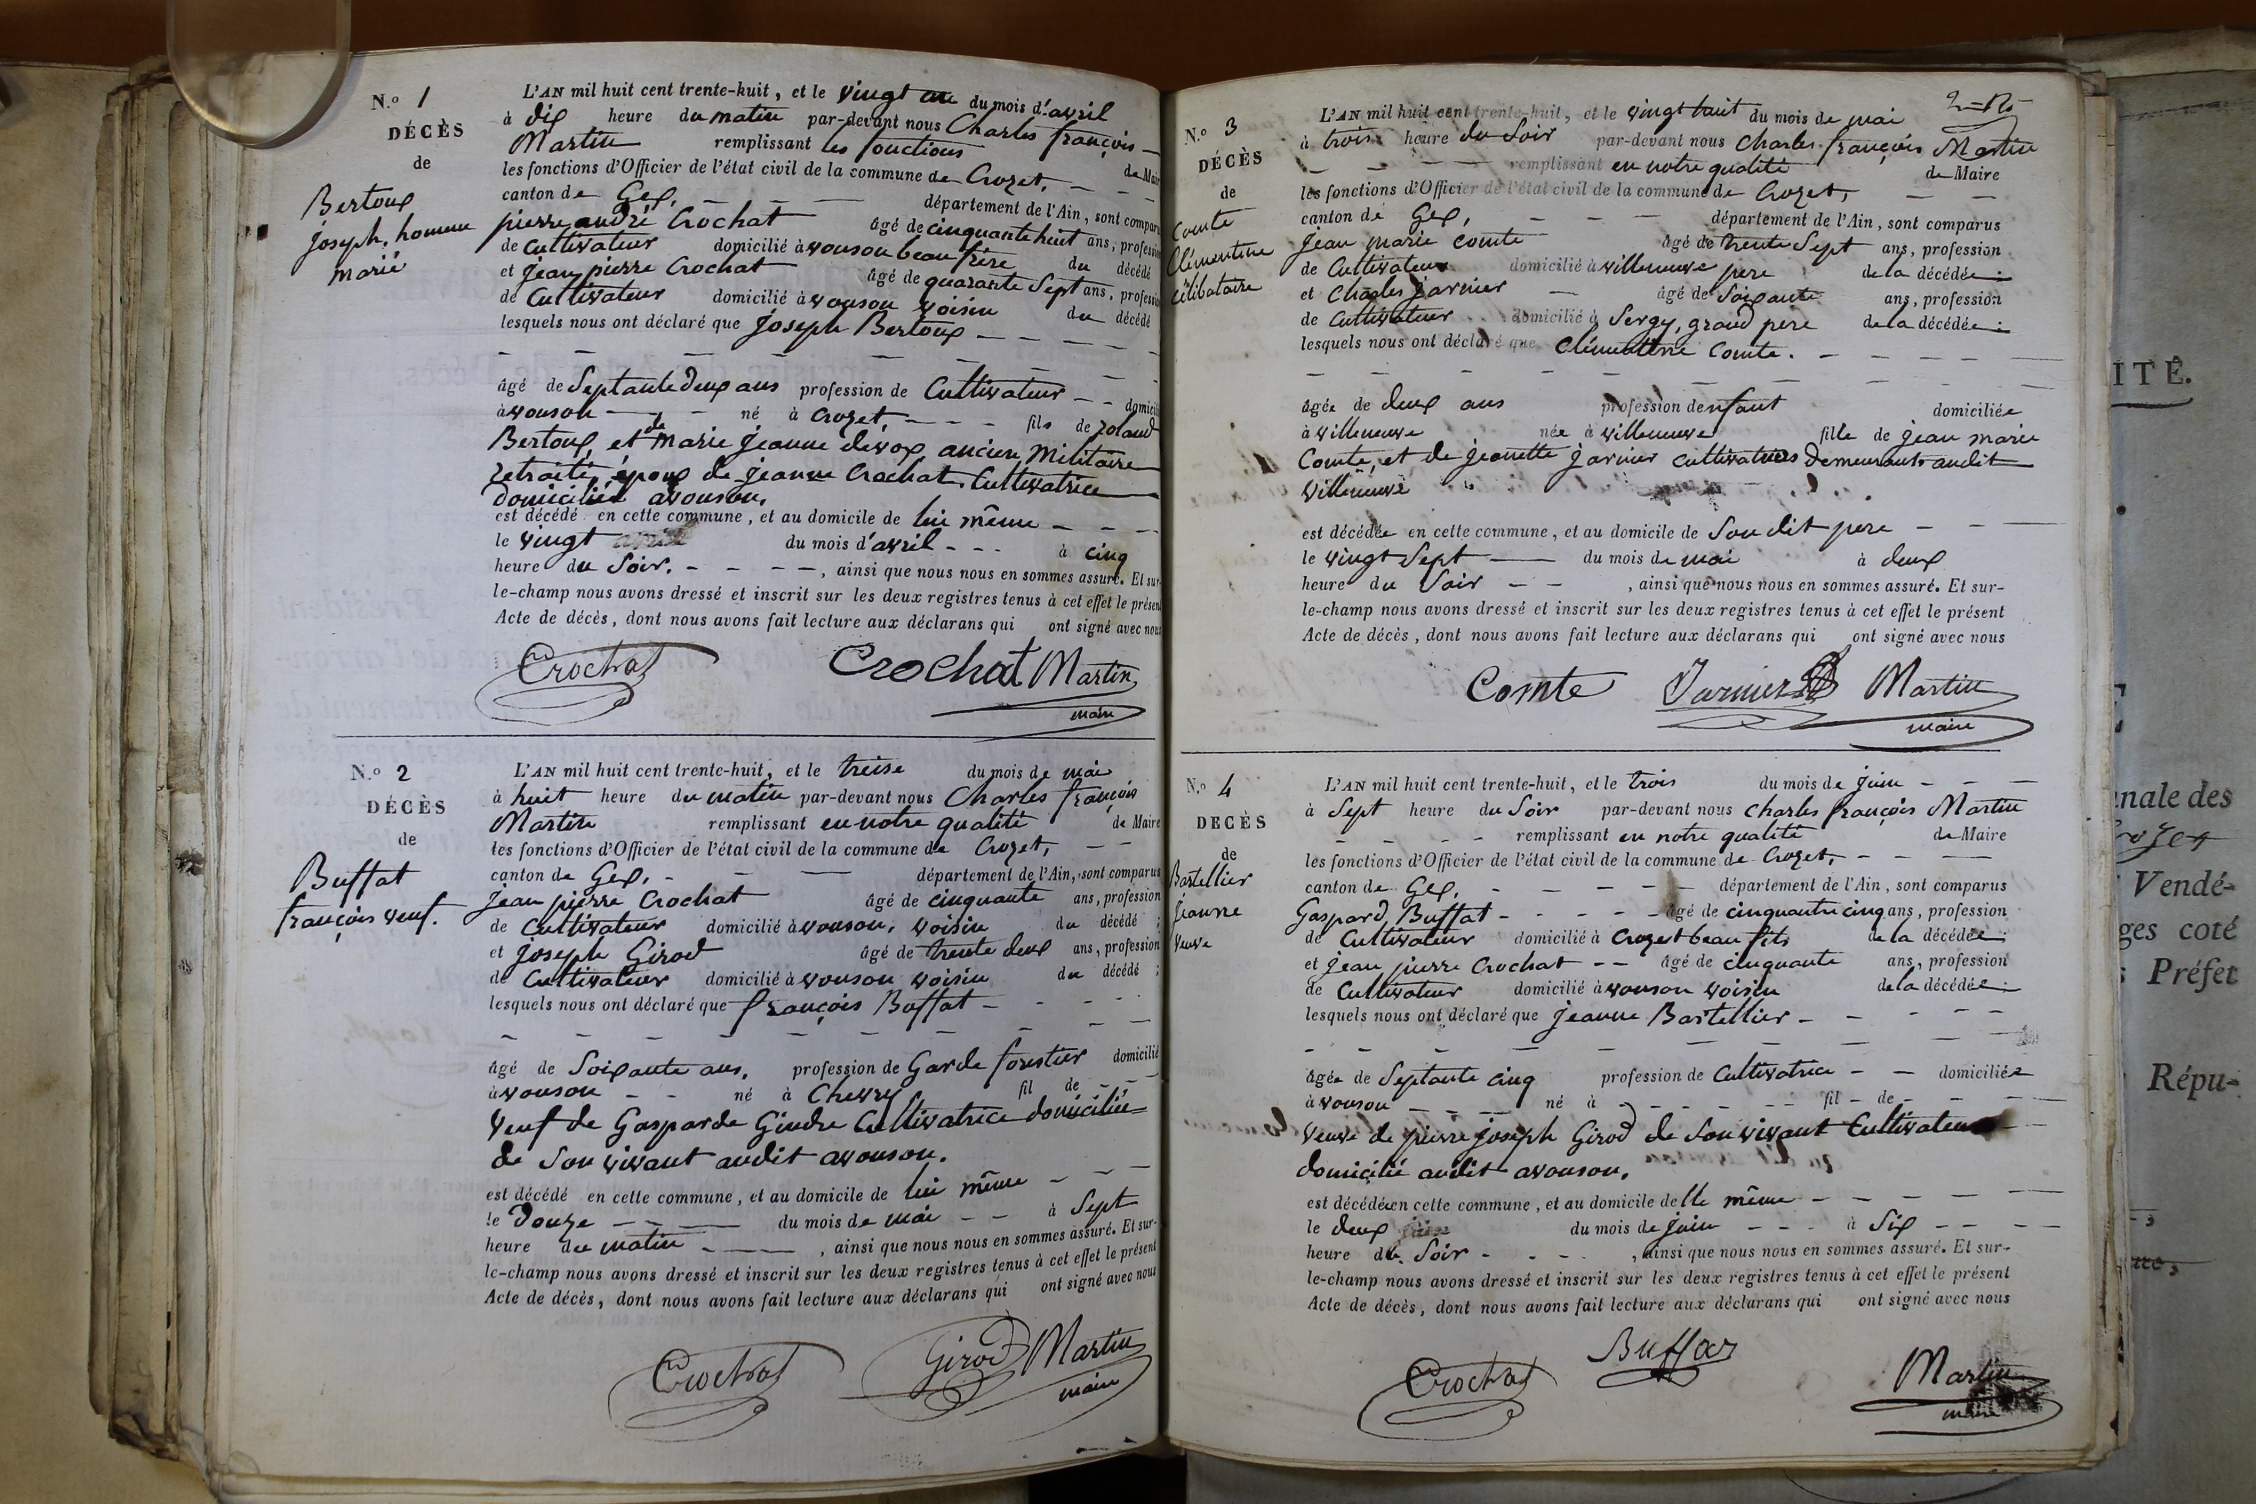 N.º 1
DÉCÈS
de
Bertoux
joseph, homme
marié
L'AN mil huit cent trente-huit, et le vingt un du mois d'avril
à dix heure du matin par-devant nous Charles françois
Martin remplissant les fonctions de Maire
les fonctions d'Officier de l'état civil de la commune de Crozet,
canton de Gex, département de l'Ain, sont comparus
pierre andré Crochat âgé de cinquante huit ans, profession
de Cultivateur domicilié à avouson beau frère du décédé
et Jean pierre Crochat âgé de quarante Sept ans, profession
de Cultivateur domicilié à avouson voisin du décédé
lesquels nous ont déclaré que Joseph Bertoux
âgé de Septante deux ans profession de Cultivateur domicilié
à avouson né à Crozet, fils de roland
Bertoux, et de Marie Jeanne devox, ancien Militaire
retraité, époux de jeanne Crochat Cultivatrice
domiciliée avouson.
est décédé en cette commune, et au domicile de lui même
le vingt du mois d'avril à cinq
heure du Soir. , ainsi que nous nous en sommes assuré. Et sur-
le-champ nous avons dressé et inscrit sur les deux registres tenus à cet effet le présent
Acte de décès, dont nous avons fait lecture aux déclarans qui ont signé avec nous
Crochat Crochat Martin
maire
N.º 2
DÉCÈS
de
Buffat
françois veuf.
L'AN mil huit cent trente-huit, et le treise du mois de mai
à huit heure du matin par-devant nous Charles françois
Martin remplissant en notre qualité de Maire
les fonctions d'Officier de l'état civil de la commune de Crozet,
canton de Gex, département de l'Ain, sont comparus
Jean pierre Crochat âgé de cinquante ans, profession
de Cultivateur domicilié à avouson, voisin du décédé ;
et joseph Girod âgé de trente deux ans, profession
de Cultivateur domicilié à avouson voisin du décédé ;
lesquels nous ont déclaré que françois Buffat
âgé de Soixante ans, profession de Garde forestier domicilié
à avouson né à Chevry fil de
veuf de Gasparde Gindre Cultivatrice domiciliée
de Son vivant audit avouson.
est décédé en cette commune, et au domicile de lui même
le Douze du mois de mai à Sept
heure du matin , ainsi que nous nous en sommes assuré. Et sur-
le-champ nous avons dressé et inscrit sur les deux registres tenus à cet effet le présent
Acte de décès, dont nous avons fait lecture aux déclarans qui ont signé avec nous
Crochat Girod Martin
maire
N.º 3
DÉCÈS
de
Comte
Clémentine
célibataire
L'AN mil huit cent trente-huit, et le vingt huit du mois de mai
à trois heure du Soir par-devant nous Charles françois Martin
remplissant en notre qualité de Maire
les fonctions d'Officier de l'état civil de la commune de Crozet,
canton de Gex, département de l'Ain, sont comparus
Jean marie Comte âgé de trente Sept ans, profession
de Cultivateur domicilié à villeneuve pere de la décédée ;
et Charles jarnier âgé de Soixante ans, profession
de Cultivateur domicilié à Sergy, grand pere de la décédée ;
lesquels nous ont déclaré que Clémentine Comte.
âgée de deux ans profession d'enfant domiciliée
à villeneuve née à villeneuve fille de jean marie
Comte, et de jeanette jarnier cultivateurs Demeurants audit
villeneuve
est décédée en cette commune, et au domicile de Son dit pere
le vingt Sept du mois de mai à deux
heure du Soir , ainsi que nous nous en sommes assuré. Et sur-
le-champ nous avons dressé et inscrit sur les deux registres tenus à cet effet le présent
Acte de décès, dont nous avons fait lecture aux déclarans qui ont signé avec nous
Comte Jarnier Martin
maire
N.º 4
DÉCÈS
de
Bartellier
Jeanne
veuve
L'AN mil huit cent trente-huit, et le trois du mois de juin
à Sept heure du Soir par-devant nous Charles françois Martin
remplissant en notre qualité de Maire
les fonctions d'Officier de l'état civil de la commune de Crozet,
canton de Gex, département de l'Ain, sont comparus
Gaspard Buffat âgé de cinquante cinq ans, profession
de Cultivateur domicilié à Crozet beau fils de la décédée ;
et jean pierre Crochat âgé de cinquante ans, profession
de Cultivateur domicilié à avouson voisin de la décédée ;
lesquels nous ont déclaré que Jeanne Bartellier
âgée de Septante cinq profession de Cultivatrice domiciliée
à avouson né à fil de
veuve de pierre joseph Girod de Son vivant Cultivateur
domicilié audit avouson.
est décédée en cette commune, et au domicile delle même
le deux du mois de juin à Six
heure du Soir , ainsi que nous nous en sommes assuré. Et sur-
le-champ nous avons dressé et inscrit sur les deux registres tenus à cet effet le présent
Acte de décès, dont nous avons fait lecture aux déclarans qui ont signé avec nous
Crochat Buffat Martin
maire
ITÉ.
nale des
Vendé-
ges coté
Préfet
Répu-